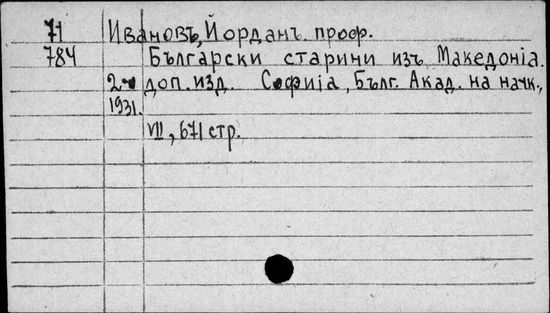 71 Ивановъ, Йорданъ проф.
784 Български старини изъ Македонiа.
2о доп. изд. Софиjа, Бълг. Акад. на наук.,
1931.
VII, 671 стр.